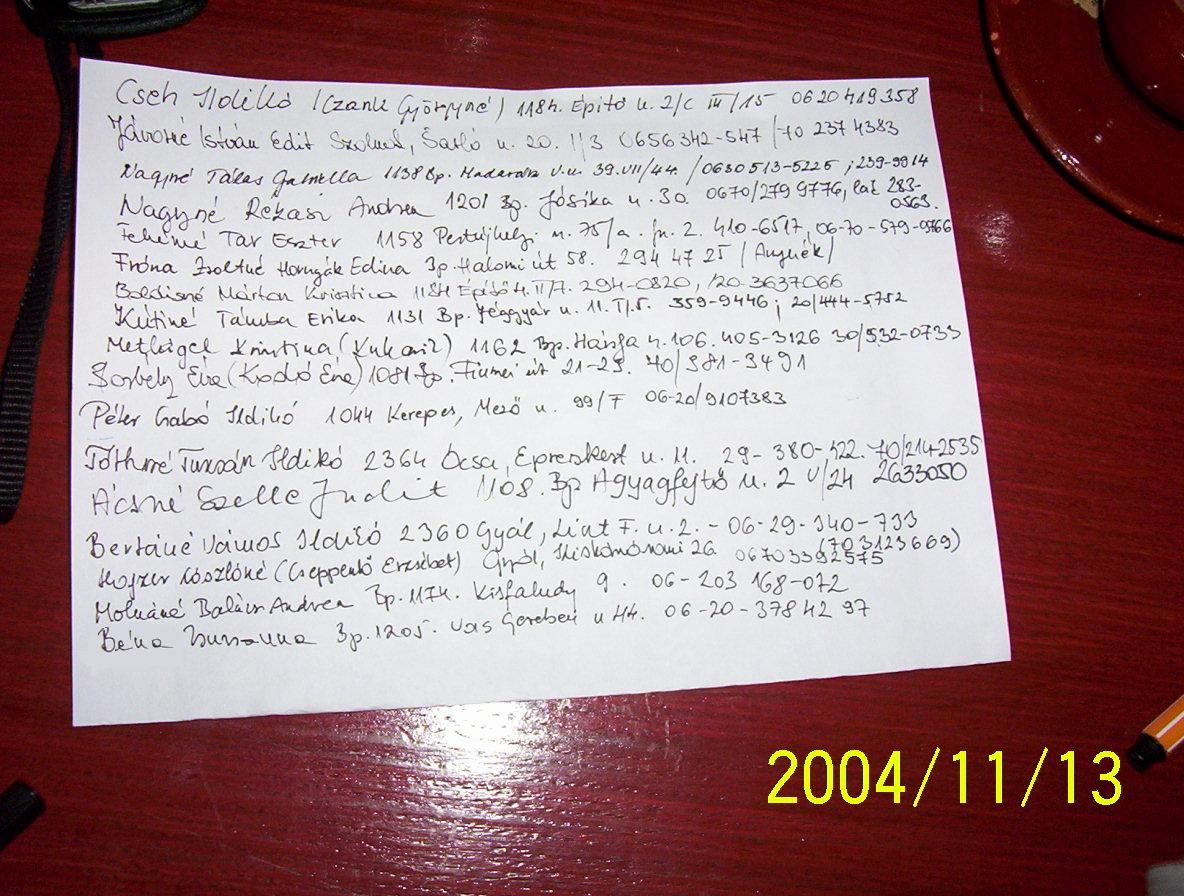 Cseh Ildikó (Czank Györgyné) 1184. Építő u. 2/c III/15 0620419358
Jávorné István Edit Szolnok, Sarló u. 20. I/3 0656342-547 /70 2374383
Nagyné Takas Gabriella 1138 Bp. Madarász V. u. 39. VII/44. /0630513-5225 ; 239-9914
Nagyné Rékasi Andrea 1201 Bp. Jósika u. 30. 0670/279 9776, lak 283-
0563.
Fehérné Tar Eszter 1158 Pestújhelyi u. 75/a. fsz. 2. 410-6517, 06-70-579-9766
Fróna Zsoltné Hornyák Edina Bp. Halomi út 58. 294 47 25 (Anyuék)
Boldisné Márton Krisztina 1184 Építő u. II/7. 294-0820, /20-3637066
Kútiné Tamba Erika 1131 Bp. Jéggyár u. 11. I/5. 359-9446 ; 20/444-5752
Krisztina 1162 Bp. Hársfa u. 106. 405-3126 30/532-0733
Borbély Éva (Kosdó Éva) 1081 Bp. Fiumei út 21-23. 70/381-3491
Péter Gabó Ildikó 1044 Kerepes, Mező u. 99/F 06-20/9107383
Tóthné Turzán Ildikó 2364 Ócsa, Epreskert u. 11. 29-380-422. 70/2142535
Ácsné Szelle Judit 1108. Bp Agyagfejtő u. 2 V/24 2633050
Bertáné Vámos Ildikó 2360 Gyál, Liszt F. u. 2. - 06-29-340-733
(703123669)
Lászlóné (Cseppentő Erzsébet) Gyál, Kiskomáromi 26 06703392575
Molnárné Balázs Andrea Bp. 1174. Kisfaludy 9. 06-203 168-072
Béna Zsuzsanna Bp. 1205. Vas Gereben u 44. 06-20-378 42 97
2004/11/13